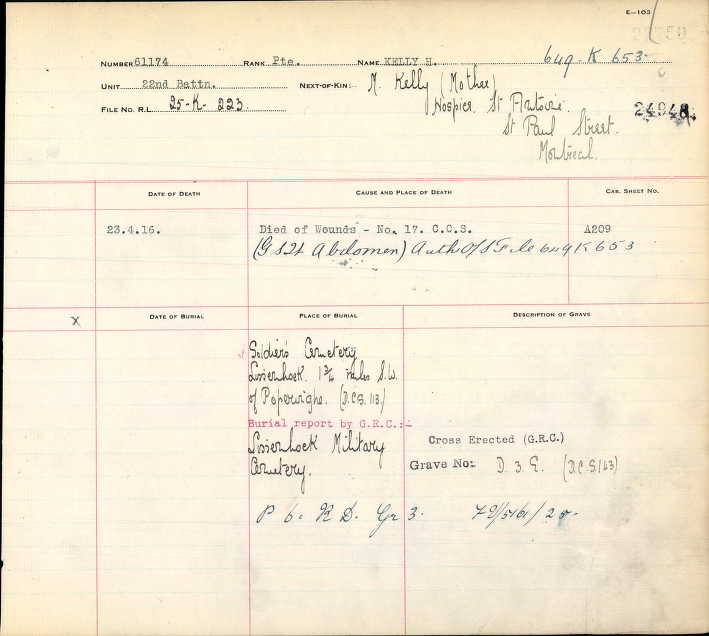 E-103
NUMBER 61174 RANK Pte. NAME KELLY H. 649-K 653
UNIT 22nd Battn. NEXT-OF-KIN: M. Kelly (Mother)
FILE NO. R.L. 25-K-223 Hospice St Antoine.
St Paul Street.
Montreal.
DATE OF DEATH CAUSE AND PLACE OF DEATH CAS. SHEET NO.
23.4.16. Died of Wounds - No. 17. C.C.S. A209
(G S W Abdomen) Auth O/S File 649 K 653
X DATE OF BURIAL PLACE OF BURIAL DESCRIPTION OF GRAVE
Soldier's Cemetery
Lissenhoek. 1¾ miles S.W.
of Poperinghe. (D.C.S. 113.)
Burial report by G.R.C.:-
Lissenhoek Military
Cemetery.
Cross Erected (G.R.C.)
Grave No: D. 3. E. (D.C.S. 143)
P 6. R D. Gr 3.